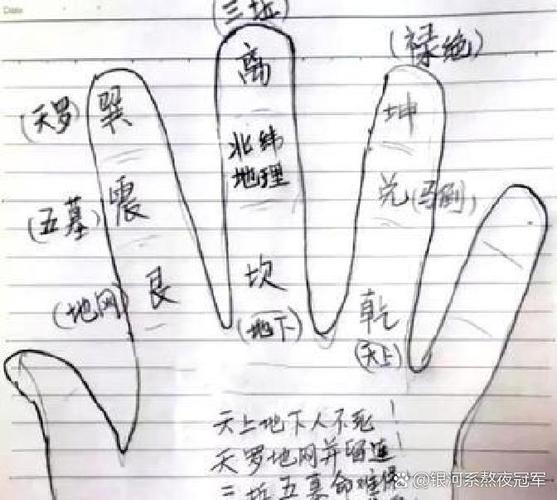 Date
(三坵)
离
(禄绝)
(天罗) 巽
坤
北纬
地理
(五墓) 震
兑
(地网) 艮
坎
(地下)
乾
(天上)
天上地下人不死！
天罗地网并留连！
三坵五墓命难保
@银河系熬夜冠军